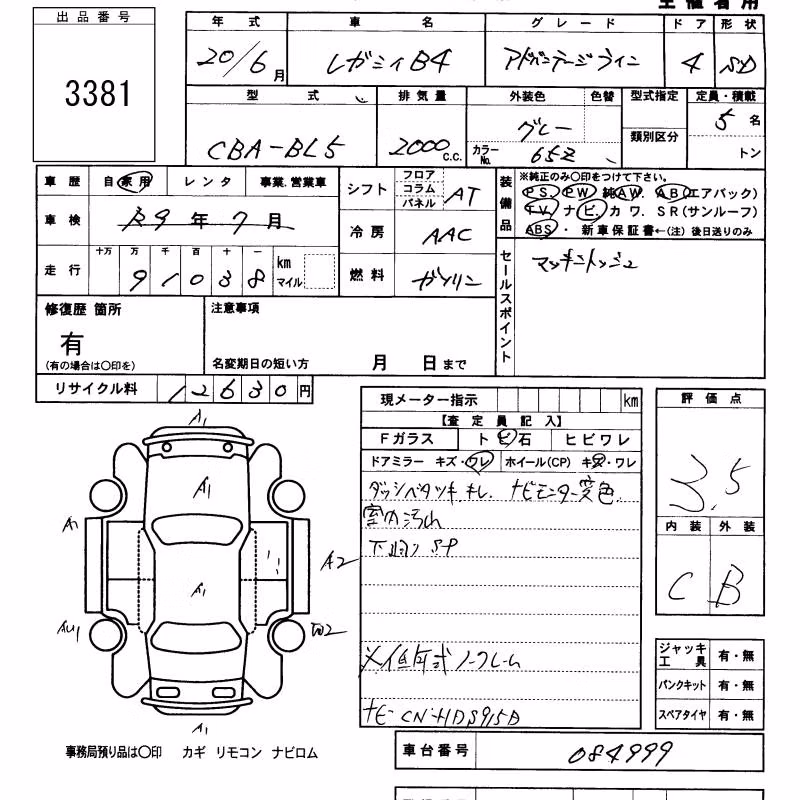 主催者用
出品番号
3381
年式 車名 グレード ドア 形状
20/6月 レガシィB4 アドバンテージライン 4 SD
型式 排気量 外装色 色替 型式指定 定員・積載
CBA-BL5 2000c.c. グレー 5名
カラーNo. 65Z 類別区分 トン
車歴 自家用 レンタ 事業.営業車
シフト フロア コラム パネル AT
装備品 ※純正のみ○印をつけて下さい。
PS. PW 純AW. AB(エアバック)
TV. ナビ. カワ. SR(サンルーフ)
ABS・ 新車保証書←(注) 後日送りのみ
車検 R9年7月
冷房 AAC
走行 十万 万 千 百 十 一
91038 km マイル
燃料 ガソリン
セールスポイント
マッキントッシュ
修復歴 箇所
有
(有の場合は○印を)
注意事項
名変期日の短い方 月 日まで
リサイクル料 12630円
現メーター指示 km
【査定員記入】
Fガラス トビ石 ヒビワレ
ドアミラー キズ・ワレ ホイール(CP) キズ・ワレ
ダッシベタツキ.キレ. ナビモニター変色.
室内汚れ
下廻り SP
評価点
3.5
内装 外装
C B
A1
A1
A1
A1
A2
A1
ナビ CN-HDS915D
ジャッキ工具 有・無
パンクキット 有・無
スペアタイヤ 有・無
事務局預り品は○印 カギ リモコン ナビロム
車台番号 084999